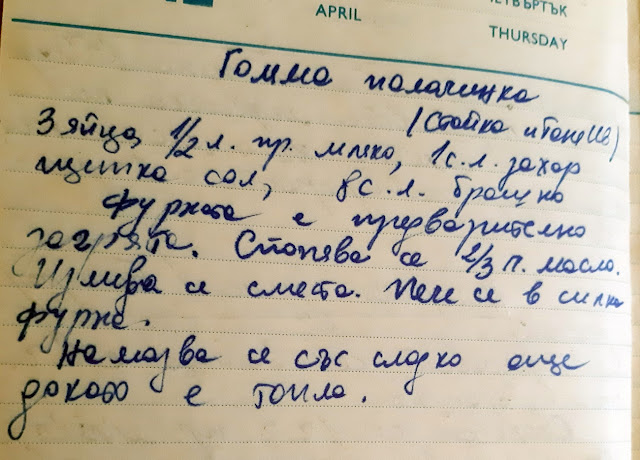 ЧЕТВЪРТЪК
APRIL
THURSDAY
Голяма палачинка
(Стойка и
3 яйца, 1/2 л. пр. мляко, 1 с. л. захар
щипка сол, 8 с. л. брашно
фурната е предварително
загрята. Стопява се 2/3 п. масло.
Излива се сместа. Пече се в силна
фурна.
Намазва се със сладко още
докато е топла.